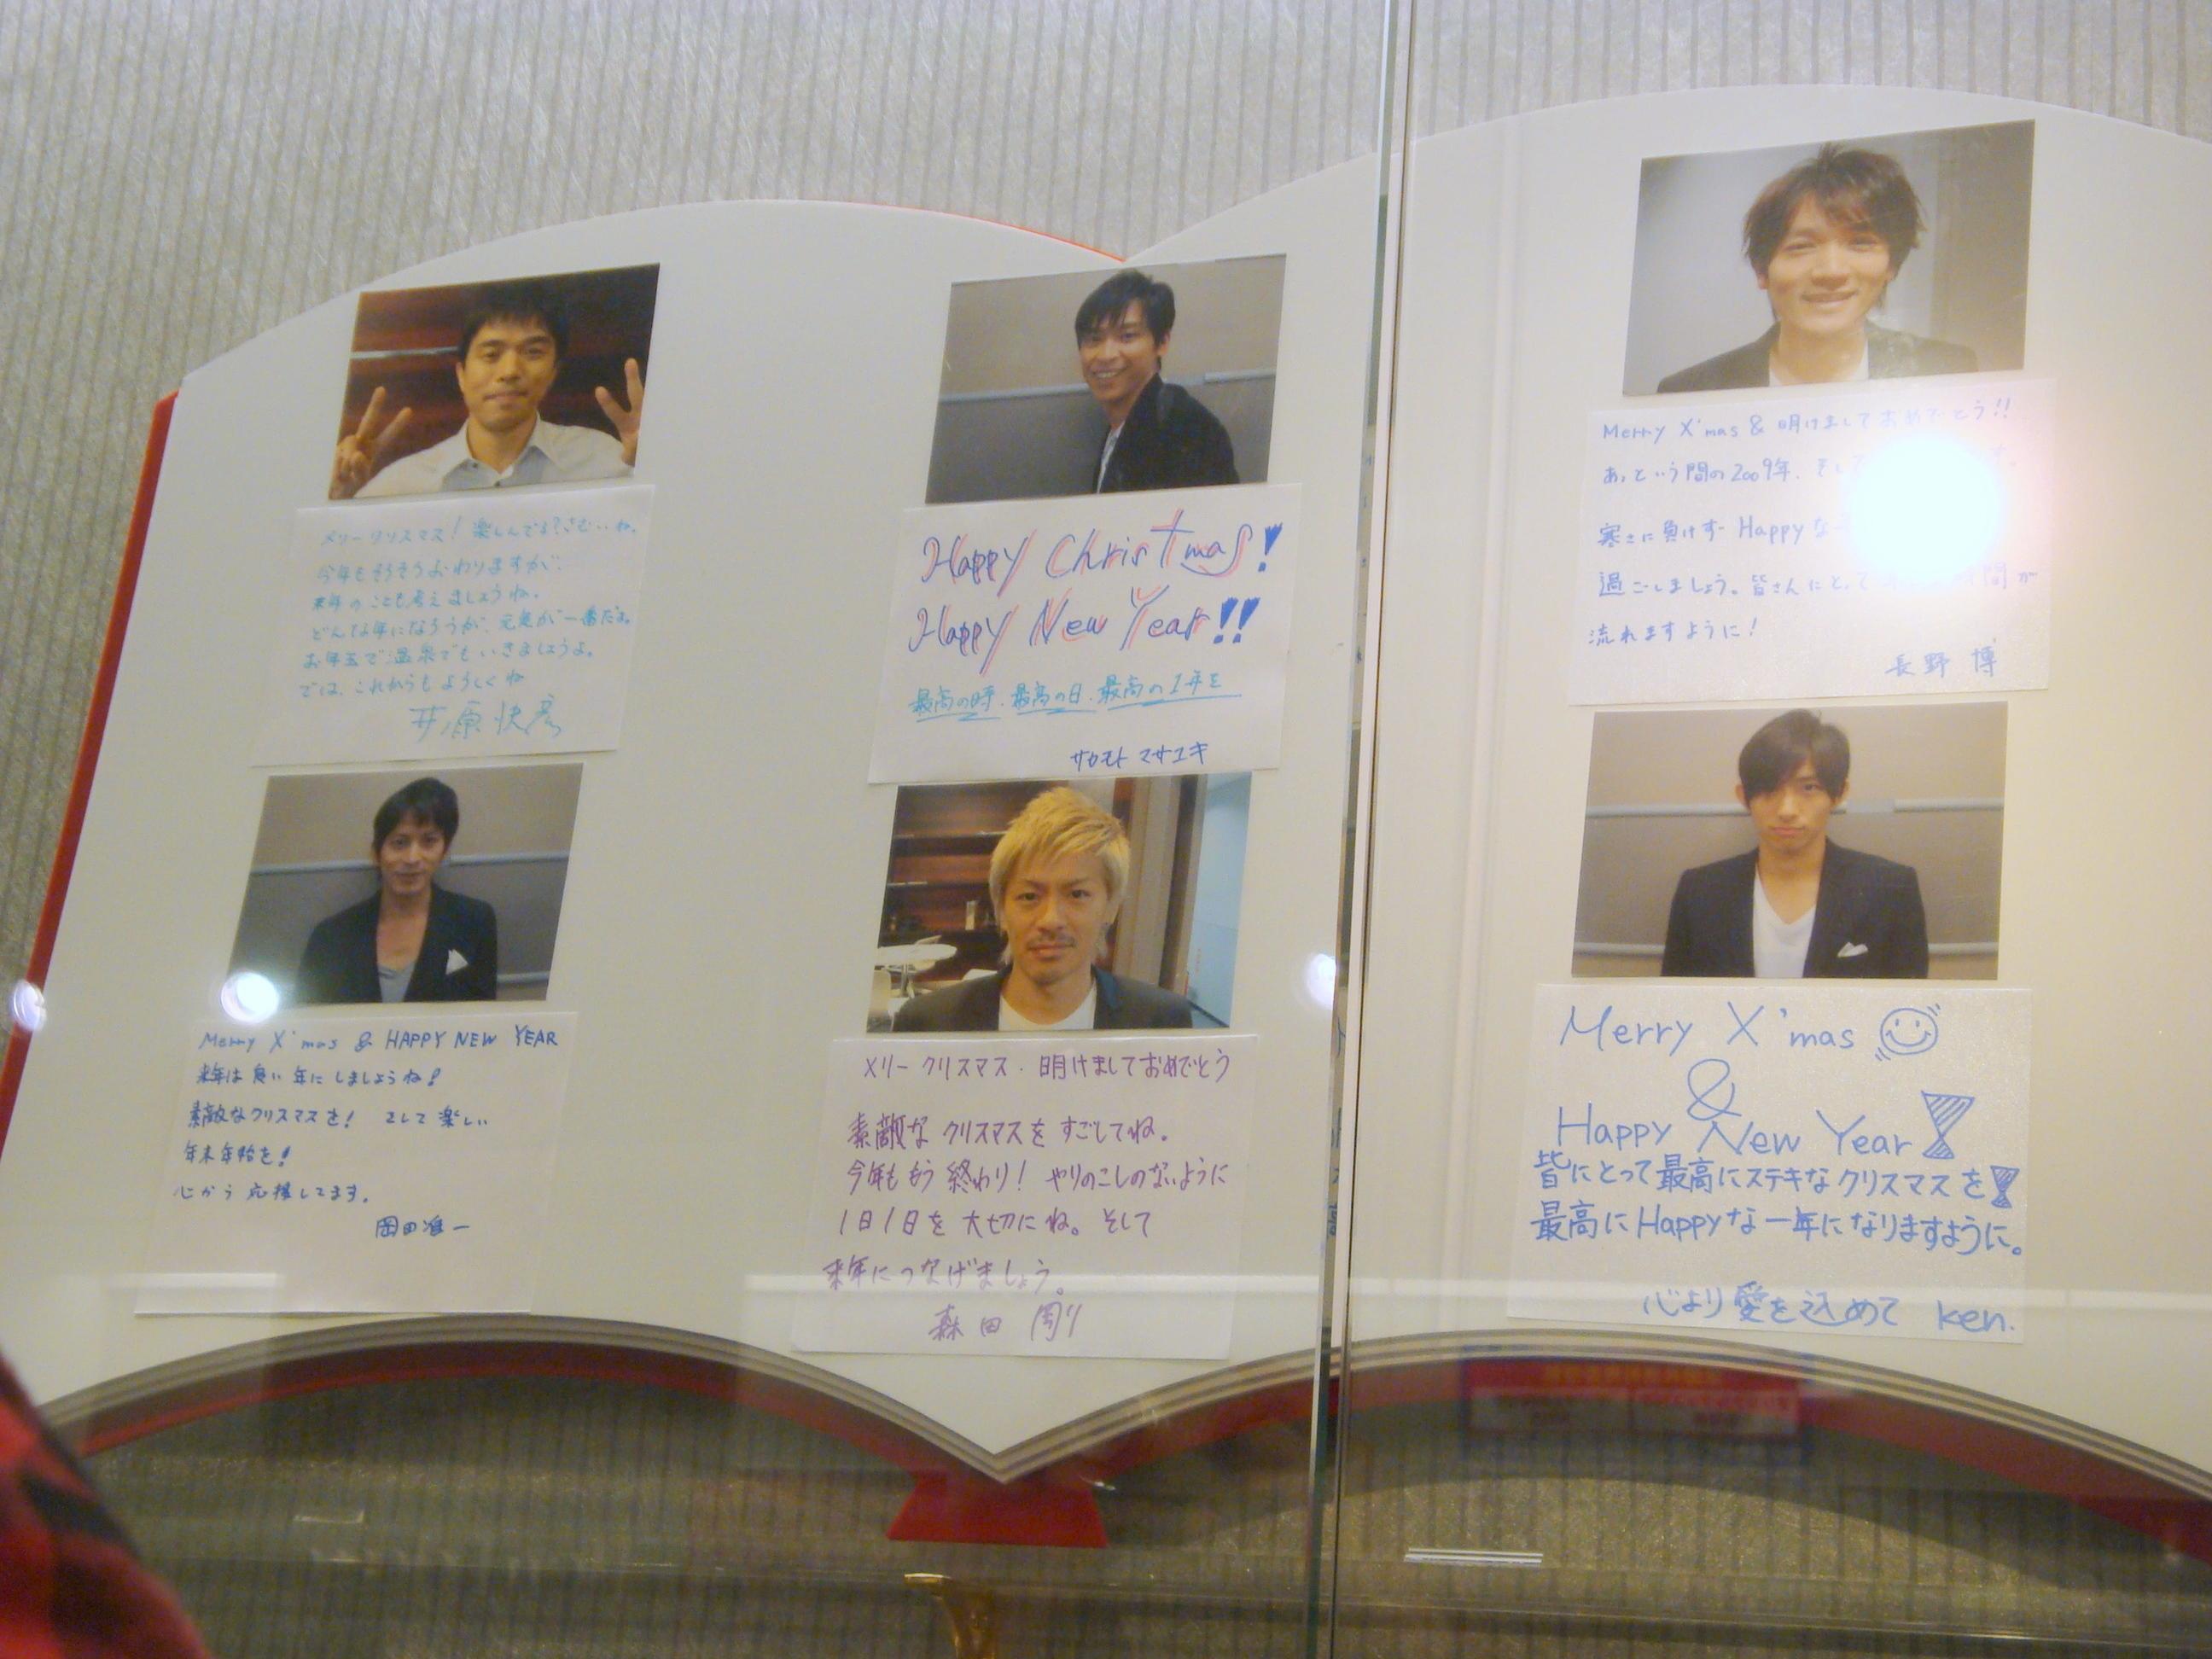 メリークリスマス！楽しんでる？さむいね。
今年もそろそろおわりますが、
来年のことも考えましょうね。
どんな年になろうが、元気が一番だよ。
お年玉で温泉でもいきましょうよ。
では、これからもよろしくね
井ノ原快彦
Happy Christmas!
Happy New Year!!
最高の時、最高の日、最高の1年を
サカモト マサユキ
Merry X'mas & 明けましておめでとう!!
あっという間の2009年、そして
寒さに負けず Happyな
過ごしましょう。皆さんにとって 時間が
流れますように！
長野 博
Merry X'mas & HAPPY NEW YEAR
来年は良い年にしましょうね！
素敵なクリスマスを！ そして楽しい
年末年始を！
心から応援してます。
岡田准一
メリークリスマス・明けましておめでとう
素敵なクリスマスをすごしてね。
今年ももう終わり！ やりのこしのないように
1日1日を大切にね。そして
来年につなげましょう。
森田 剛
Merry X'mas
&
Happy New Year
皆にとって最高にステキなクリスマスを
最高にHappyな一年になりますように。
心より愛を込めて ken.